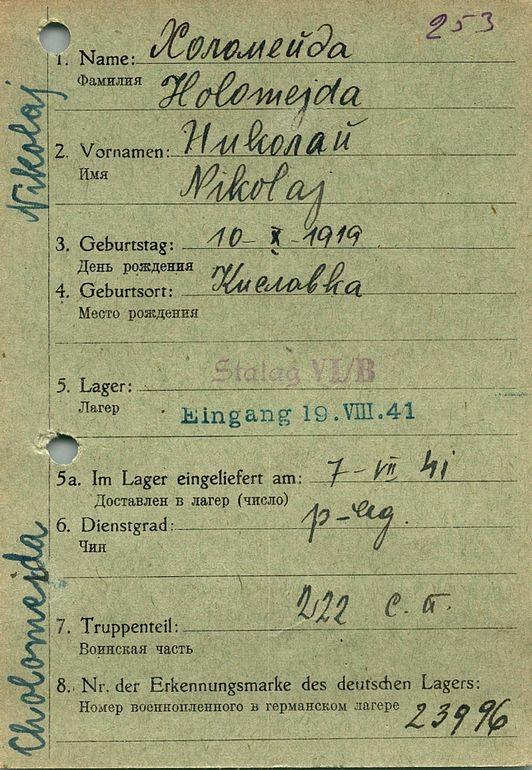 253
1. Name: Холомейда
Фамилия
Holomejda
2. Vornamen: Николай
Имя
Nikolaj
3. Geburtstag: 10-X-1919
День рождения
4. Geburtsort: Кисловка
Место рождения
Stalag VI/B
5. Lager:
Лагер
Eingang 19.VIII.41
5a. Im Lager eingeliefert am: 7-VII 41
Доставлен в лагер (число)
6. Dienstgrad: р-ед.
Чин
222 с.п.
7. Truppenteil:
Воинская часть
8. Nr. der Erkennungsmarke des deutschen Lagers:
Номер военнопленного в германском лагере
23996
Cholomejda
Nikolaj